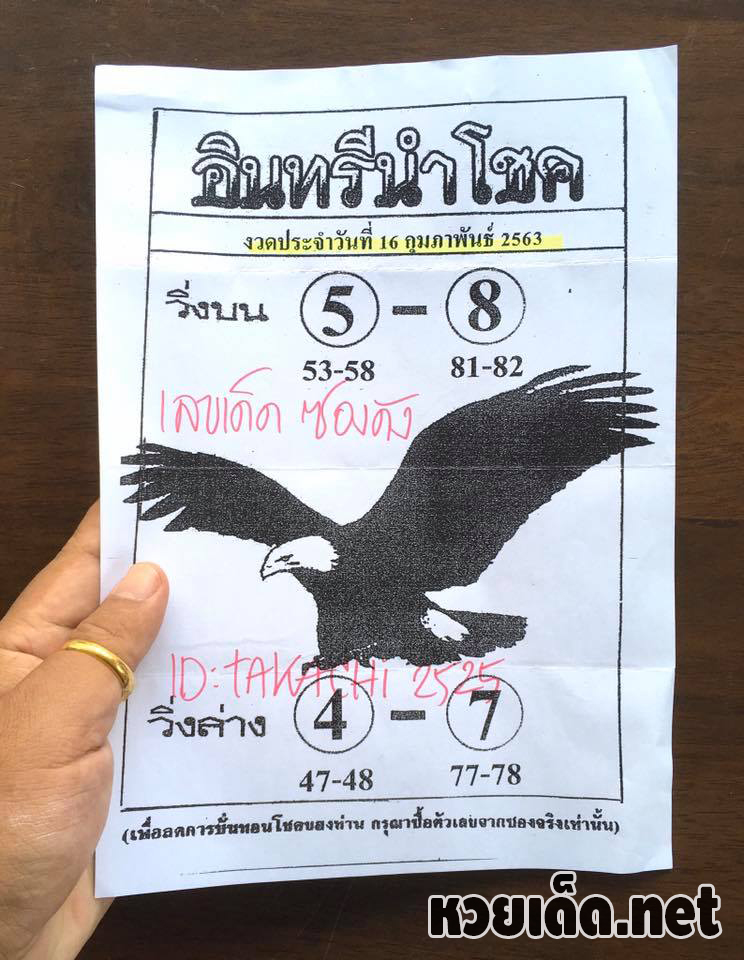 อินทรีนำโชค
งวดประจำวันที่ 16 กุมภาพันธ์ 2563
วิ่งบน 5 - 8
53-58 81-82
เลขเด็ด ซองดัง
ID: TAKACHi 2525
วิ่งล่าง 4 - 7
47-48 77-78
(เพื่อลดการบั่นทอนโชคของท่าน กรุณาซื้อตัวเลขจากซองจริงเท่านั้น)
หวยเด็ด.net